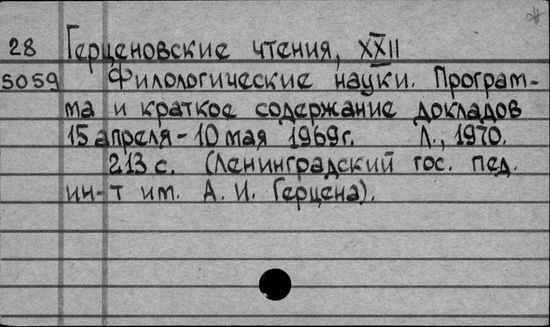 28 Герценовские чтения, XXII
5059 Филологические науки. Програм-
ма и краткое содержание докладов
15 апреля - 10 мая 1969г. Л., 1970.
213 с. (Ленинградский гос. пед.
ин-т им. А. И. Герцена).